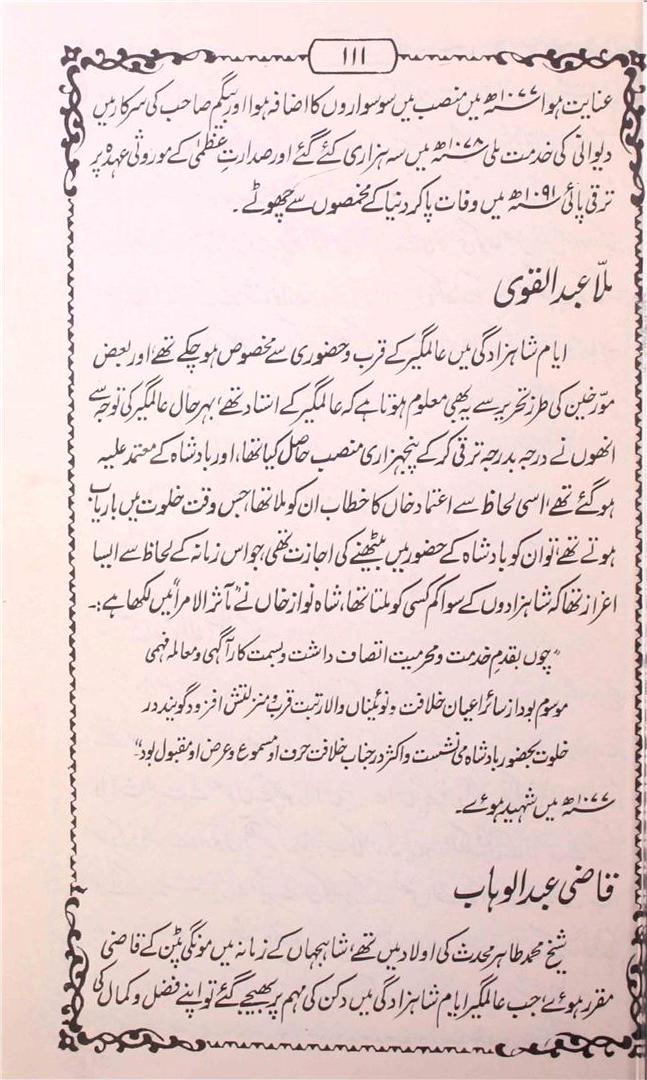 ۱۱۱
عنایت ہوا ۱۰۷۷ھ میں منصب میں سو سواروں کا اضافہ ہوا اور بیگم صاحب کی سرکار میں
دیوانی کی خدمت ملی ۱۰۷۸ھ میں سہ ہزاری کئے گئے اور صدارتِ عظمیٰ کے موروثی عہدہ پر
ترقی پائی ۱۰۹۱ھ میں وفات پا کر دنیا کے مخمصوں سے چھوٹے۔
ملّا عبد القوی
ایام شاہزادگی میں عالمگیر کے قرب و حضوری سے مخصوص ہو چکے تھے اور بعض
مورّخین کی طرز تحریر سے یہ بھی معلوم ہوتا ہے کہ عالمگیر کے استاد تھے، بہر حال عالمگیر کی توجہ سے
انھوں نے درجہ بدرجہ ترقی کر کے پنجہزاری منصب حاصل کیا تھا، اور بادشاہ کے معتمد علیہ
ہو گئے تھے، اسی لحاظ سے اعتماد خاں کا خطاب ان کو ملا تھا، جس وقت خلوت میں باریاب
ہوتے تھے، تو ان کو بادشاہ کے حضور میں بیٹھنے کی اجازت تھی، جو اس زمانہ کے لحاظ سے ایسا
اعزاز تھا کہ شاہزادوں کے سوا کم کسی کو ملتا تھا، شاہ نواز خاں نے "مآثر الامرا" میں لکھا ہے:۔
"چوں بقدم خدمت و محرمیت اتصاف داشت و بسمت کار آگہی و معاملہ فہمی
موسوم بود از سائر اعیان خلافت و نوئیناں والا رتبت قرب و منزلتش افزود گویند در
خلوت بحضور بادشاہ می نشست و اکثر در جناب خلافت حرف او مسموع و عرض او مقبول بود"۔
۱۰۷۷ھ میں شہید ہوئے۔
قاضی عبد الوہاب
شیخ محمد طاہر محدث کی اولاد میں تھے، شاہجہاں کے زمانہ میں مونگی پٹن کے قاضی
مقرر ہوئے، جب عالمگیر ایام شاہزادگی میں دکن کی مہم پر بھیجے گئے تو اپنے فضل و کمال کی